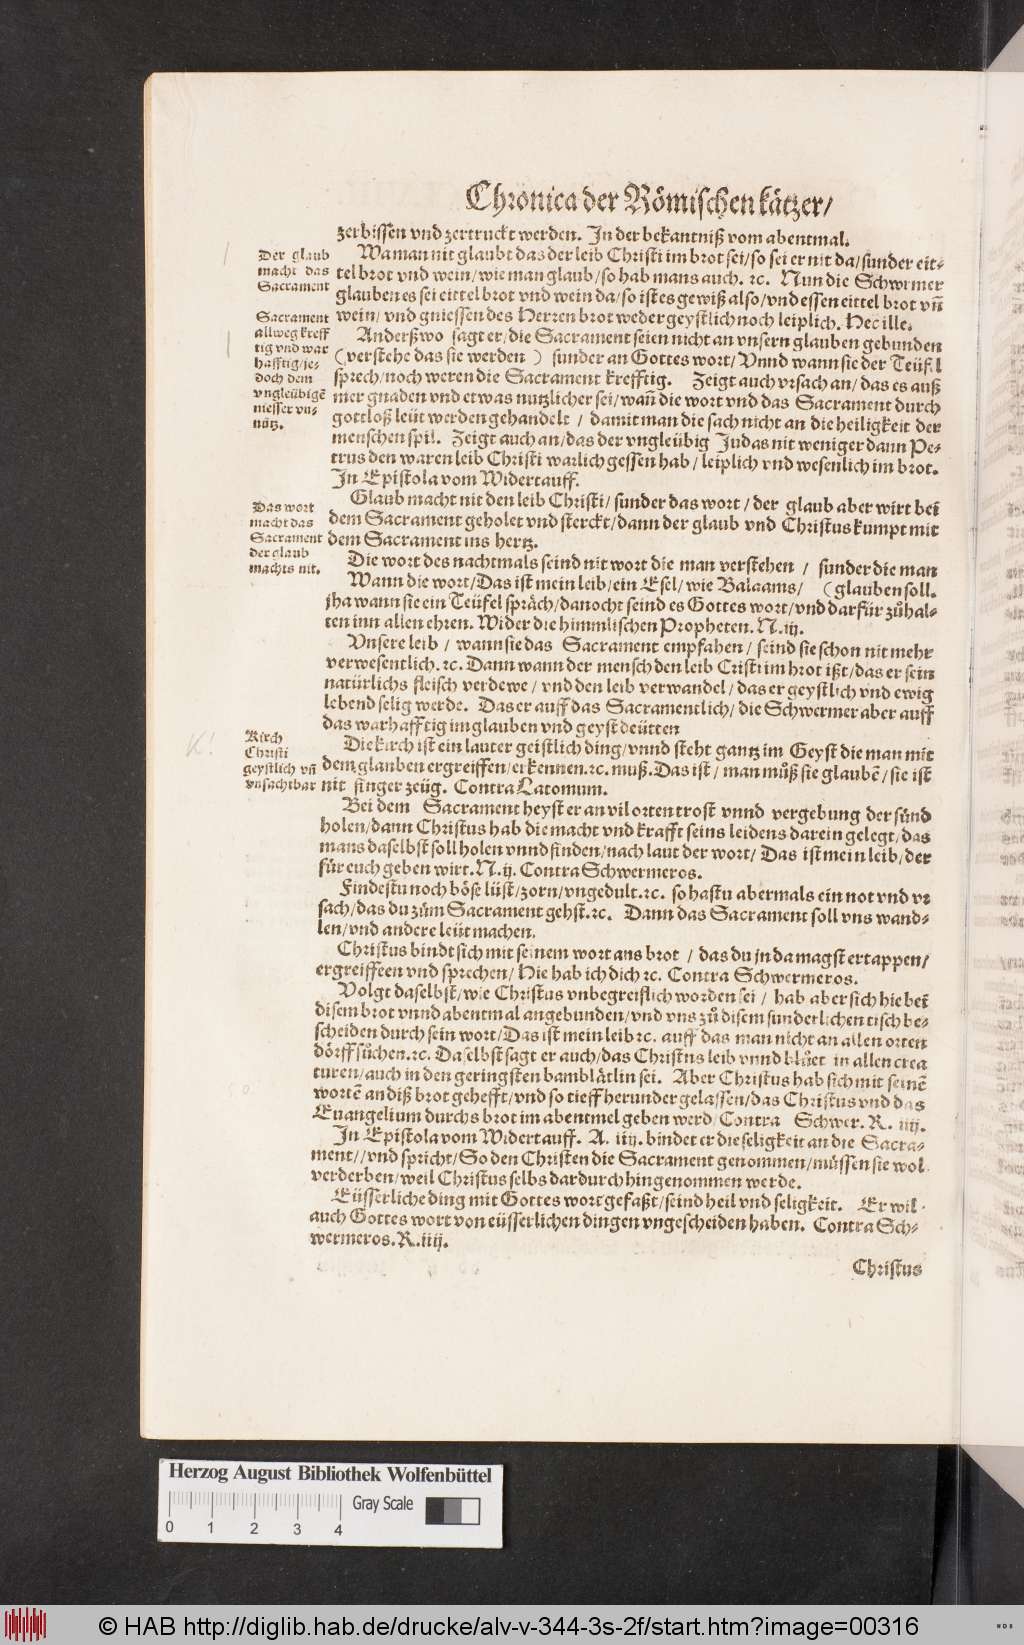 Chronica der Römischen kätzer/
zerbissen vnd zertruckt werden. In der bekantniß vom abentmal.
Der glaub
macht das
Sacrament
Wa man nit glaubt das der leib Christi im brot sei/so sei er nit da/sunder eit-
tel brot vnd wein/wie man glaub/so hab mans auch. ꝛc. Nun die Schwermer
glauben es sei eittel brot vnd wein da/so ist es gewiß also/vnd essen eittel brot vñ
wein/vnd gniessen des Herren brot weder geystlich noch leiplich. Hec ille.
Sacrament
allweg kreff
tig vnd war
hafftig/je-
doch dem
vngleübigẽ
niesser vn-
nütz.
Anderßwo sagt er/die Sacrament seien nicht an vnsern glauben gebunden
(verstehe das sie werden) sunder an Gottes wort/Vnnd wann sie der Teüfel
sprech/noch weren die Sacrament krefftig. Zeigt auch vrsach an/das es auß
mer gnaden vnd etwas nutzlicher sei/wañ die wort vnd das Sacrament durch
gottloß leüt werden gehandelt / damit man die sach nicht an die heiligkeit der
menschen spil. Zeigt auch an/das der vngleübig Judas nit weniger dann Pe-
trus den waren leib Christi warlich gessen hab/leiplich vnd wesenlich im brot.
In Epistola vom Widertauff.
Das wort
macht das
Sacrament
der glaub
machts nit.
Glaub macht nit den leib Christi/sunder das wort/der glaub aber wirt bei
dem Sacrament geholet vnd sterckt/dann der glaub vnd Christus kumpt mit
dem Sacrament ins hertz.
Die wort des nachtmals seind nit wort die man verstehen / sunder die man
Wann die wort/Das ist mein leib/ein Esel/wie Balaams/ (glauben soll.
jha wann sie ein Teüfel spräch/danocht seind es Gottes wort/vnd darfür zůhal-
ten inn allen ehren. Wider die himmlischen Propheten. N. iij.
Vnsere leib / wann sie das Sacrament empfahen / seind sie schon nit mehr
verwesentlich. ꝛc. Dann wann der mensch den leib Cristi im brot ißt/das er sein
natürlichs fleisch verdewe / vnd den leib verwandel/das er geystlich vnd ewig
lebend selig werde. Das er auff das Sacramentlich/die Schwermer aber auff
das warhafftig im glauben vnd geyst deütten
Kirch
Christi
geystlich vñ
vnsachtbar
Die kirch ist ein lauter geistlich ding/vnnd steht gantz im Geyst die man mit
dem glauben ergreiffen/erkennen. ꝛc. muß. Das ist/man můß sie glaubẽ/sie ist
nit finger zeüg. Contra Latomum.
Bei dem Sacrament heyst er an vil orten trost vnnd vergebung der sünd
holen/dann Christus hab die macht vnd krafft seins leidens darein gelegt/das
mans daselbst soll holen vnnd finden/nach laut der wort/Das ist mein leib/der
für euch geben wirt. N. ij. Contra Schwermeros.
Findestu noch böse lüst/zorn/vngedult. ꝛc. so hastu abermals ein not vnd vr
sach/das du zům Sacrament gehst. ꝛc. Dann das Sacrament soll vns wand-
len/vnd andere leüt machen.
Christus bindt sich mit seinem wort ans brot / das du jn da magst ertappen/
ergreiffeen vnd sprechen/Hie hab ich dich ꝛc. Contra Schwermeros.
Volgt daselbst/wie Christus vnbegreiflich worden sei / hab aber sich hie bei
disem brot vnnd abentmal angebunden/vnd vns zů disem sunderlichen tisch be-
scheiden durch sein wort/Das ist mein leib ꝛc. auff das man nicht an allen orten
dörff sůchen. ꝛc. Daselbst sagt er auch/das Christus leib vnnd blůet in allen crea
turen/auch in den geringsten bamblätlin sei. Aber Christus hab sich mit seinẽ
wortẽ an diß brot gehefft/vnd so tieff herunder gelassen/das Christus vnd das
Euangelium durchs brot im abentmel geben werd/Contra Schwer. R. iiij.
In Epistola vom Widertauff. A. iiij. bindet er die seligkeit an die Sacra-
ment//vnd spricht/So den Christen die Sacrament genommen/müssen sie wol
verderben/weil Christus selbs dardurch hingenommen werde.
Eüsserliche ding mit Gottes wort gefaßt/seind heil vnd seligkeit. Er wil
auch Gottes wort von eüsserlichen dingen vngescheiden haben. Contra Sch-
wermeros. R. iiij.
Christus
Herzog August Bibliothek Wolfenbüttel
Gray Scale
0 1 2 3 4
© HAB http://diglib.hab.de/drucke/alv-v-344-3s-2f/start.htm?image=00316